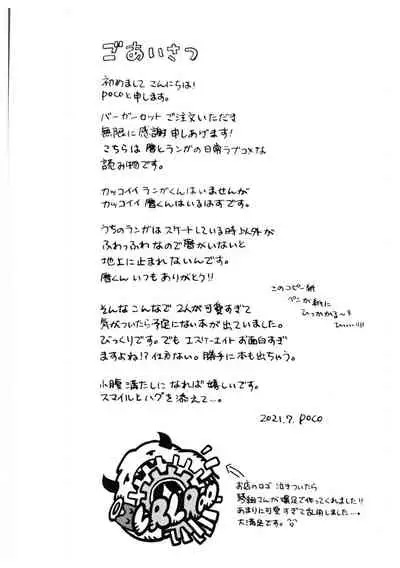 ごあいさつ
初めまして こんにちは!
pocoと申します。
バーガーセット でご注文いただき
無限に感謝申しあげます!
こちらは 暦とランガの日常ラブコメな
読み物です。
カッコイイ ランガくんはいませんが
カッコイイ 暦くんはいるはずです。
うちのランガは スケートしている時以外が
ふわっふわ なので暦がいないと
地上に止まれないんです。
暦くん いつもありがとう!!
このコピー紙
ペンが紙に
ひっかかる〜!
ひぃ……!!!
そんな こんなで 2人が可愛すぎて
気がついたら予定にない本が出ていました。
びっくりです。でも エスケーエイト お面白すぎ
ますよね!? 仕方ない。勝手に本も出ちゃう。
小腹満たしに なれば嬉しいです。
スマイルとハグを添えて…。
2021.7. poco
お店のロゴ 泣きついたら
琴錨さんが爆速で作ってくれました!!
あまりに可愛すぎて乱用しました…。
大満足です。